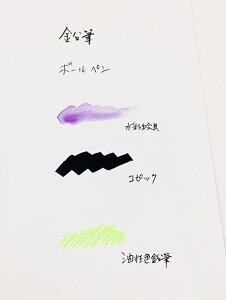 鉛筆
ボールペン
水彩絵具
コピック
油性色鉛筆